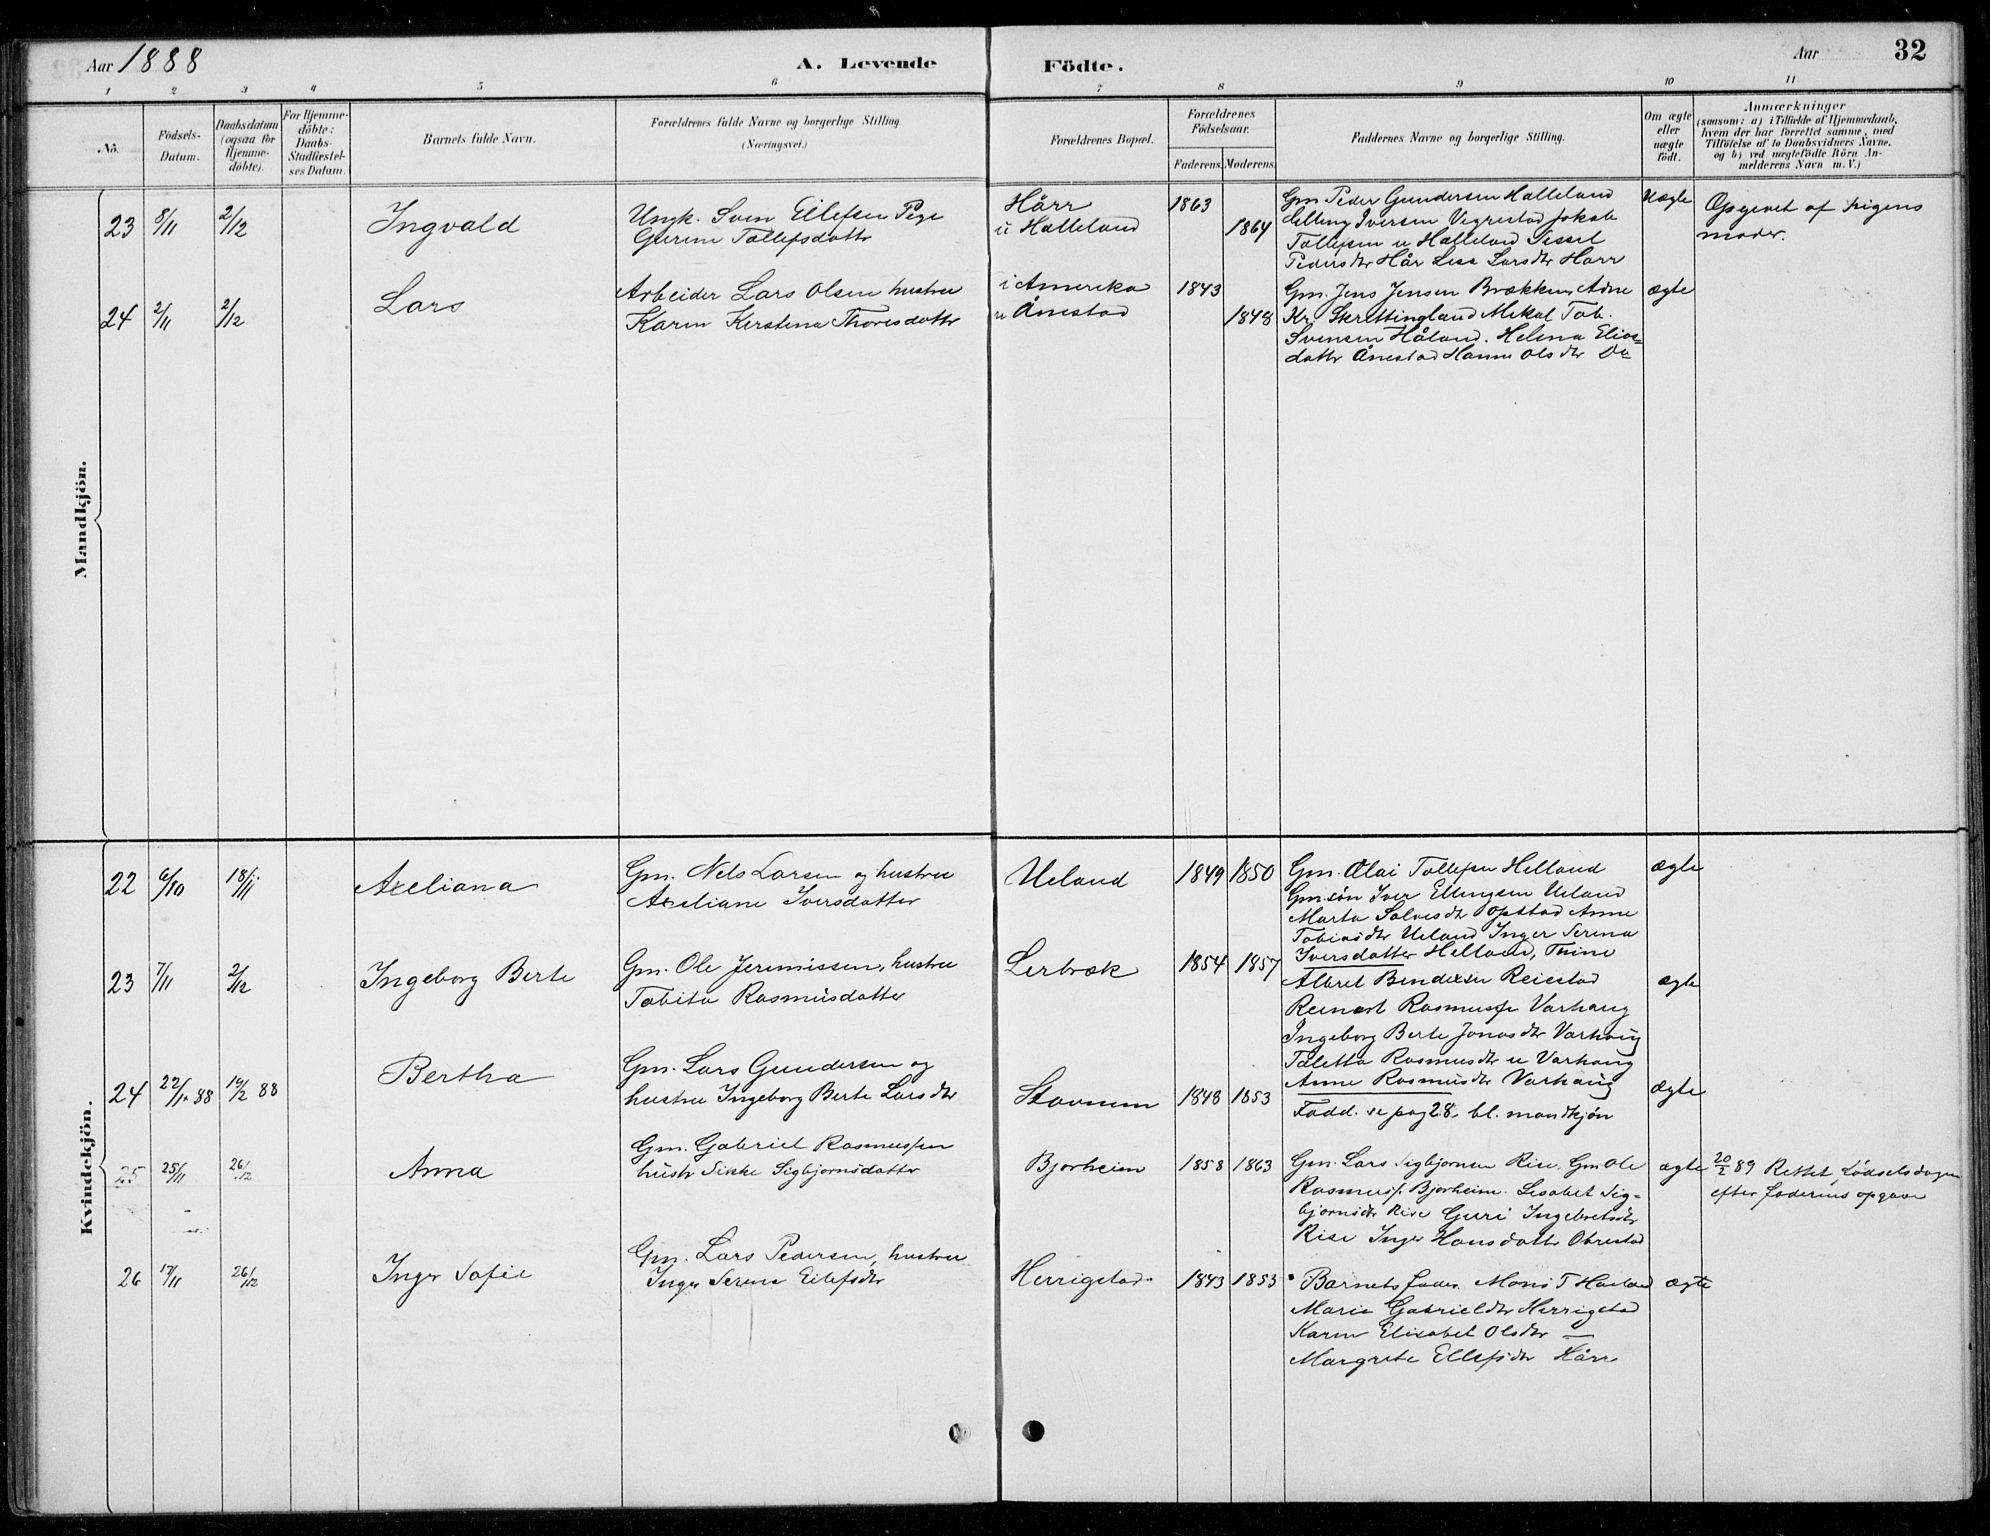 Aar 1888
A. Levende
Födte.
Aar
32
1 2 3 4 5 6 7 8 9 10 11
No.
Födsels-
Datum.
Daabsdatum
(ogsaa för
Hjemme-
döbte).
For Hjemme-
döbte:
Daabs-
Stadfæstel-
ses Datum.
Barnets fulde Navn.
Forældrenes fulde Navne og borgerlige Stilling.
(Næringsvei.)
Forældrenes Bopæl.
Forældrenes
Födselsaar.
Faderens. Moderens.
Faddernes Navne og borgerlige Stilling.
Om ægte
eller
uægte
födt.
Anmærkninger
(saasom: a) i Tilfælde af Hjemmedaab,
hvem der har forrettet samme, med
Tilföielse af to Daabsvidners Navne.
og b) ved uægtefödte Börn An-
melderens Navn m. V.)
Mandkjön.
23 8/11 2/12 Ingvald
Ungk. Sven Eilefsen Pige
Gurine Tollefsdattr
Hårr
u Halleland
1863
1864
Gm Peder Gundersen Halleland
Elling Iversen Vigrestad Jakob
Tollefsen u Halleland Sissel
Pedersdtr Hår Lise Larsdtr Harr
Uægte
Opgivet af Pigens
moder.
24 2/11 2/12 Lars
Arbeider Lars Olsen hustru
Karin Kerstena Thoresdattr
i Amerika
u Ånestad
1843
1848
Gm. Jens Jensen Brækken Adne
Kr. Skrettingland Mikal Tob.
Svensen Håland. Helena Elias-
dattr Ånestad Hanne Olsdtr Do
ægte
Kvindekjön.
22 6/10 18/11 Axeliana
Gm. Nels Larsen og hustru
Axeliane Iversdatter
Ueland
1849 1850
Gm. Olai Tollefsen Helland
Gmsøn Iver Ellingsen Ueland
Marta Salvesdtr Opstad Anne
Tobiasdtr Ueland Inger Serena
Iversdatter Helland, Trine
ægte
23 7/11 2/12 Ingeborg Berte
Gm. Ole Jeremissen, hustru
Tobita Rasmusdatter
Lerbræk
1854 1857
Albret Bendixsen Reiestad
Reinert Rasmusse Varhaug
Ingeborg Berte Jonasdtr Varhaug
Taletta Rasmusdtr u Varhaug
Anne Rasmusdtr Varhaug
ægte
24 22/1 88 19/2 88 Bertha
Gm. Lars Gundersen og
hustru Ingeborg Berte Larsdtr
Stavnem
1848 1853
Fadd. se pag 28. bl. mandkjøn
ægte
25 25/11 26/12 Anna
Gm. Gabriel Rasmussen
hustr Sikke Sigbjørnsdatter
Bjorheim
1858 1863
Gm. Lars Sigbjørnsen Rise. Gm Ole
Rasmuss. Bjorheim. Lisabet Sig-
bjørnsdtr Rise Guri Ingebretsdtr
Rise Inger Hansdattr Obrestad
ægte
20/2 89 Rettet Fødselsdagen
efter faderens opgave
26 17/11 26/12 Inger Sofie
Gm. Lars Pedersen, hustru
Inger Serene Eilefsdtr
Herrigstad
1843 1853
Barnets fader. Mons T Haaland
Marie Gabrieldtr Herrigstad
Karen Elisabet Olsdtr —
Margrete Ellefsdtr Hårr
ægte